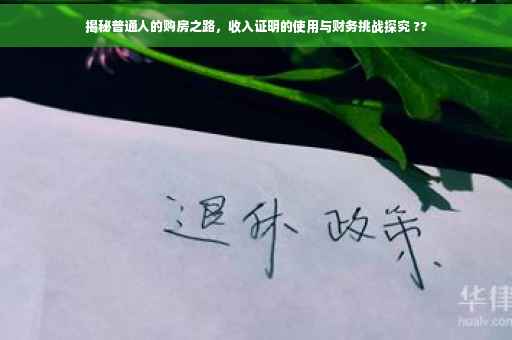 揭秘普通人的购房之路，收入证明的使用与财务挑战探究 ??
退休 政策
华律
hualv.com